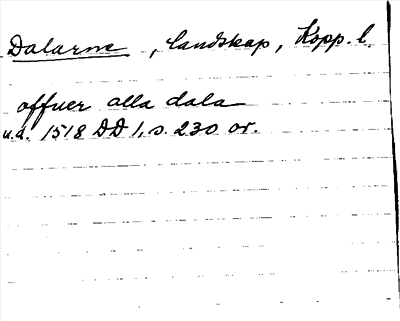 Dalarne, landskap, Kopp. l.
offuer alla dala
u.d. 1518 DD 1, s. 230 or.